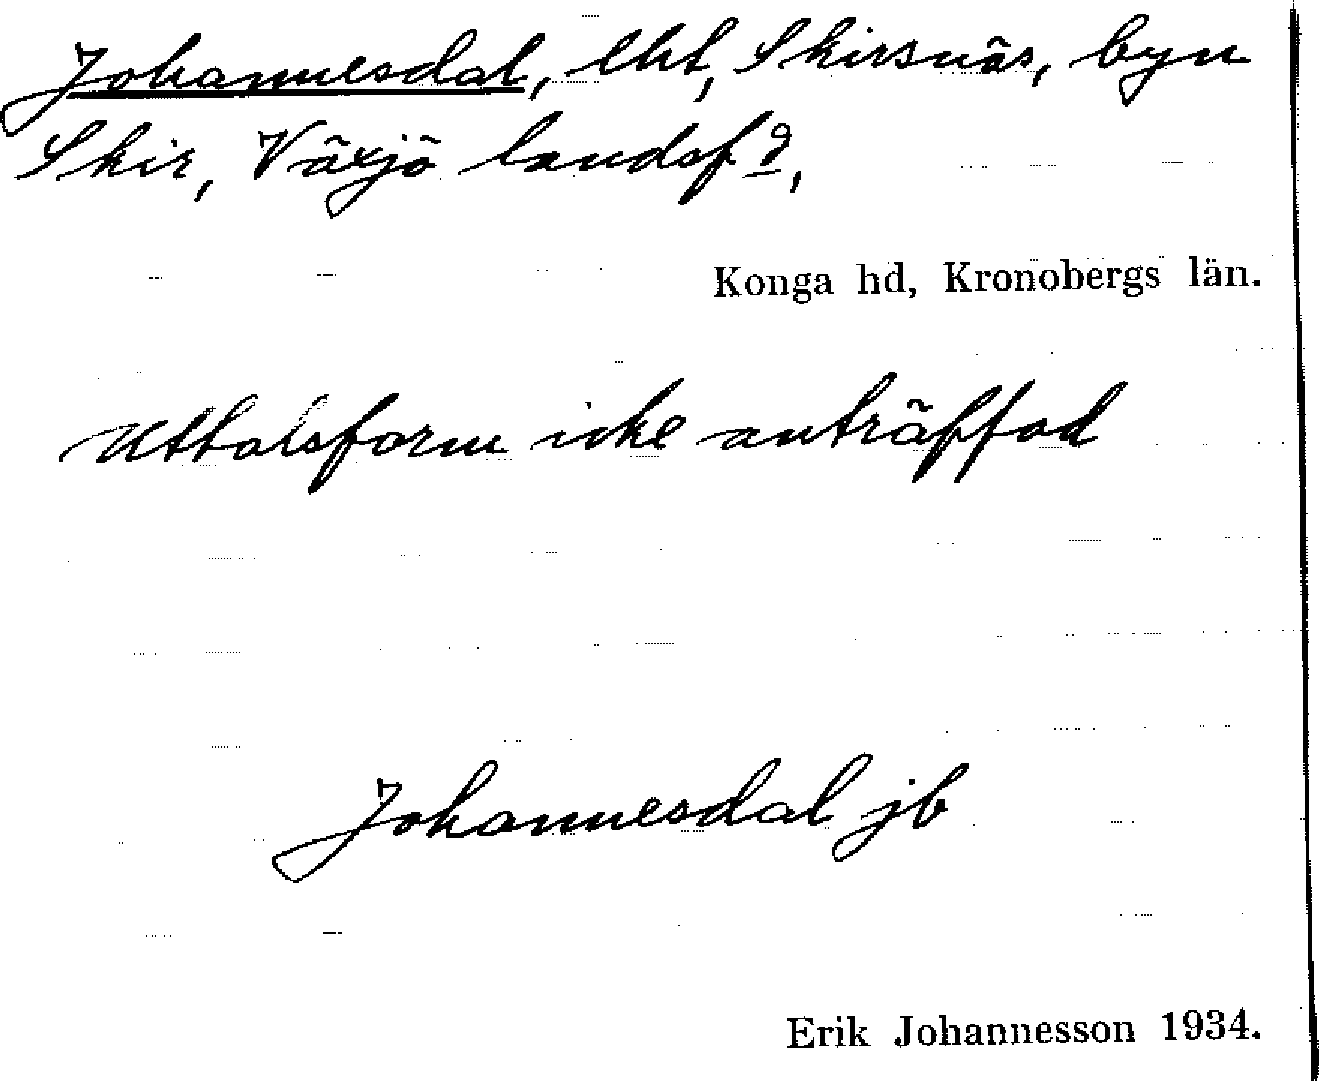 Johannesdal, lht, Skirsnäs, byn
Skir, Växjö landsfg,
Konga hd, Kronobergs län.
Uttalsform icke anträffad
Johannesdal jb
Erik Johannesson 1934.